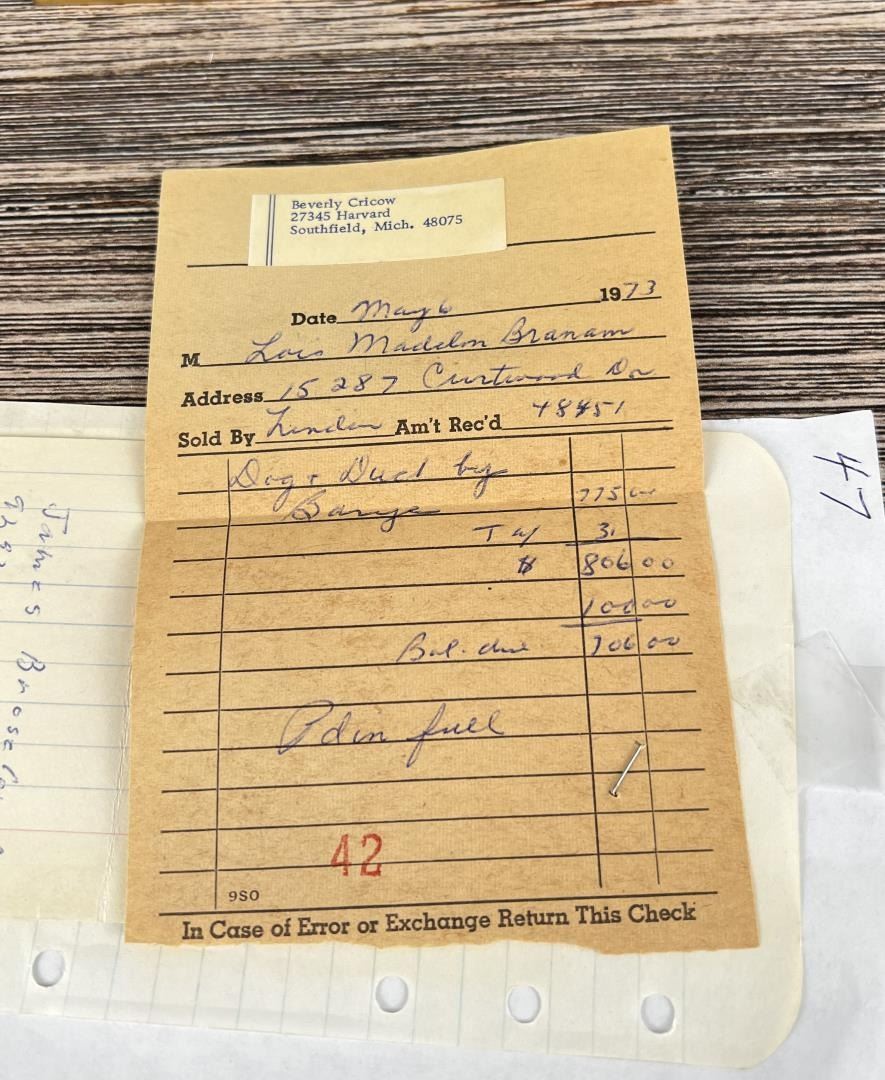 Beverly Cricow
27345 Harvard
Southfield, Mich. 48075
Date May 6 1973
M Lois Madelon Branam
Address 15287 Curtwood Dr
Sold By Linden Am't Rec'd 48451
Dog & Duck by
Barye 775 00
Tax 31
$ 806 00
100 00
Bal. due 706 00
Pd in full
42
9SO
In Case of Error or Exchange Return This Check
47
James